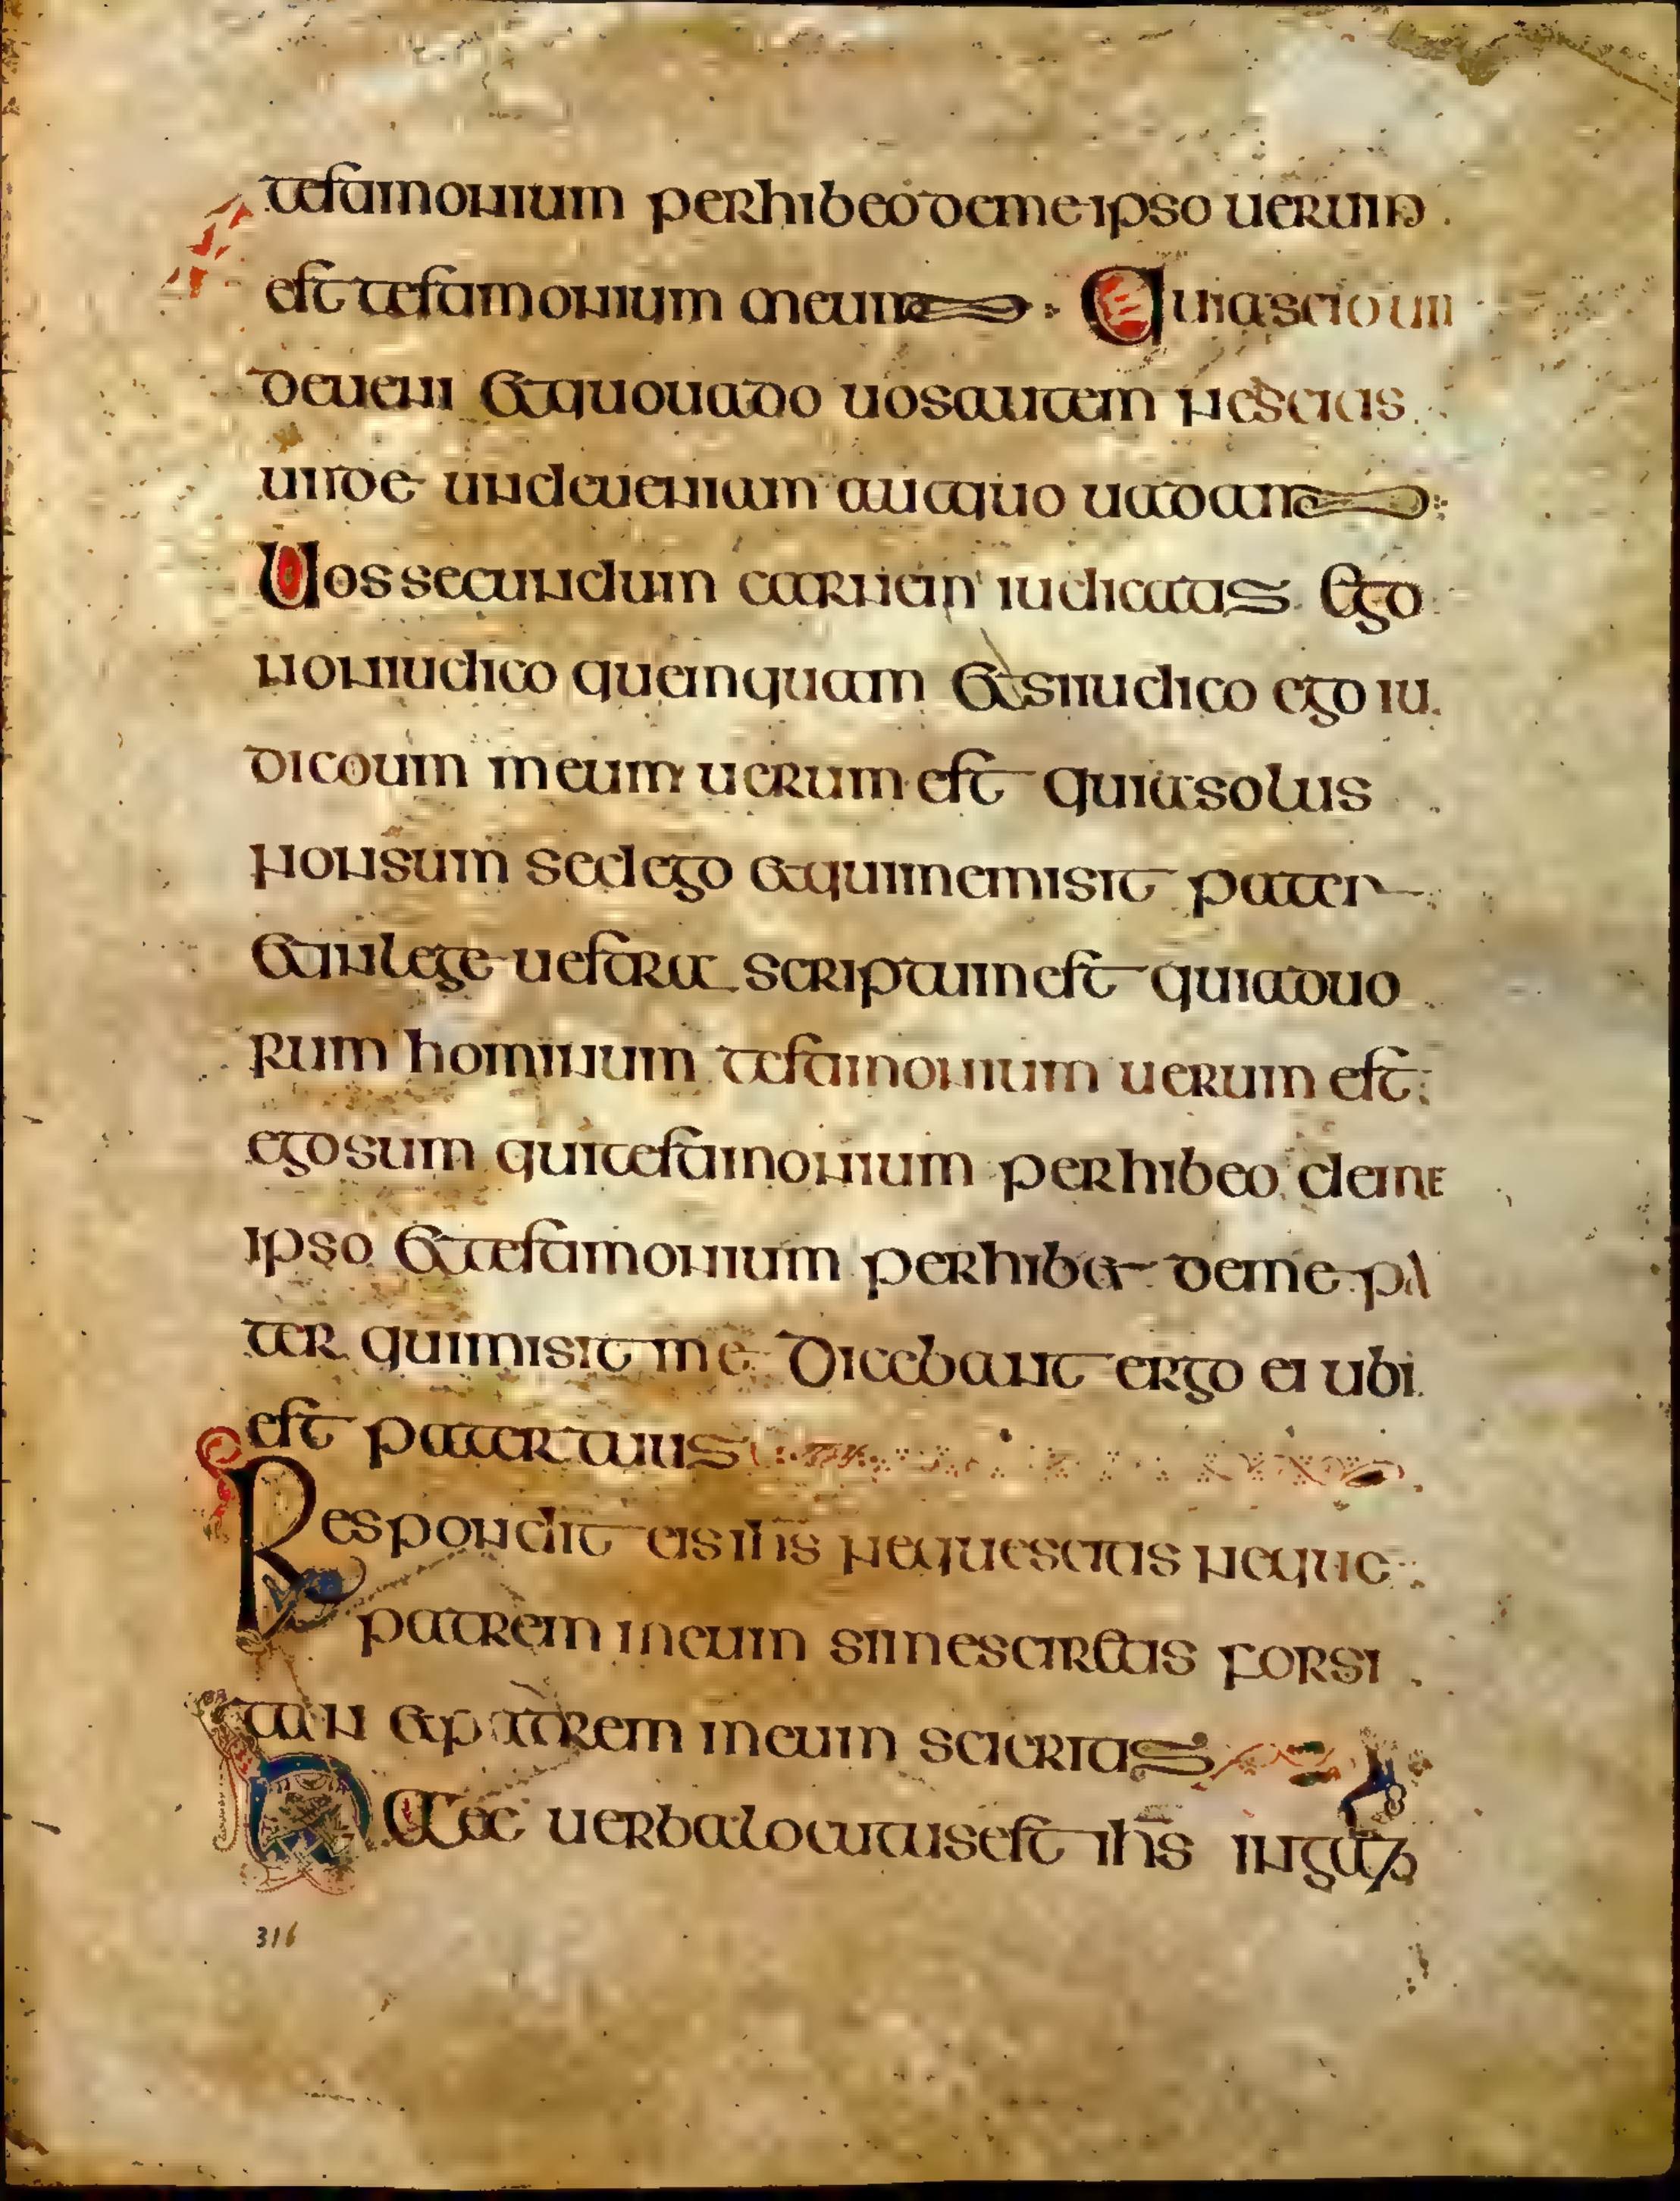 testimonium perhibeo de me ipso uerum
est testimonium meum Quia scio un
de ueni et quo uado uos autem nescitis
unde unde uenium aut quo uadam
Uos secundum carnem iudicatis Ego
non iudico quemquam et si iudico ego iu
dicoum meum uerum est quia solus
non sum sed ego et qui me misit pater
et in lege uestra scriptum est quia duo
rum hominum testimonium uerum est
ego sum qui testimonium perhibeo de me
ipso et testimonium perhibet de me pa
ter qui misit me Dicebant ergo ei ubi
est pater tuus
Respondit eis ihs neque scitis neque
patrem meum si me sciretis forsi
tan et patrem meum scieritis
Haec uerba locutus est ihs in gaz
316